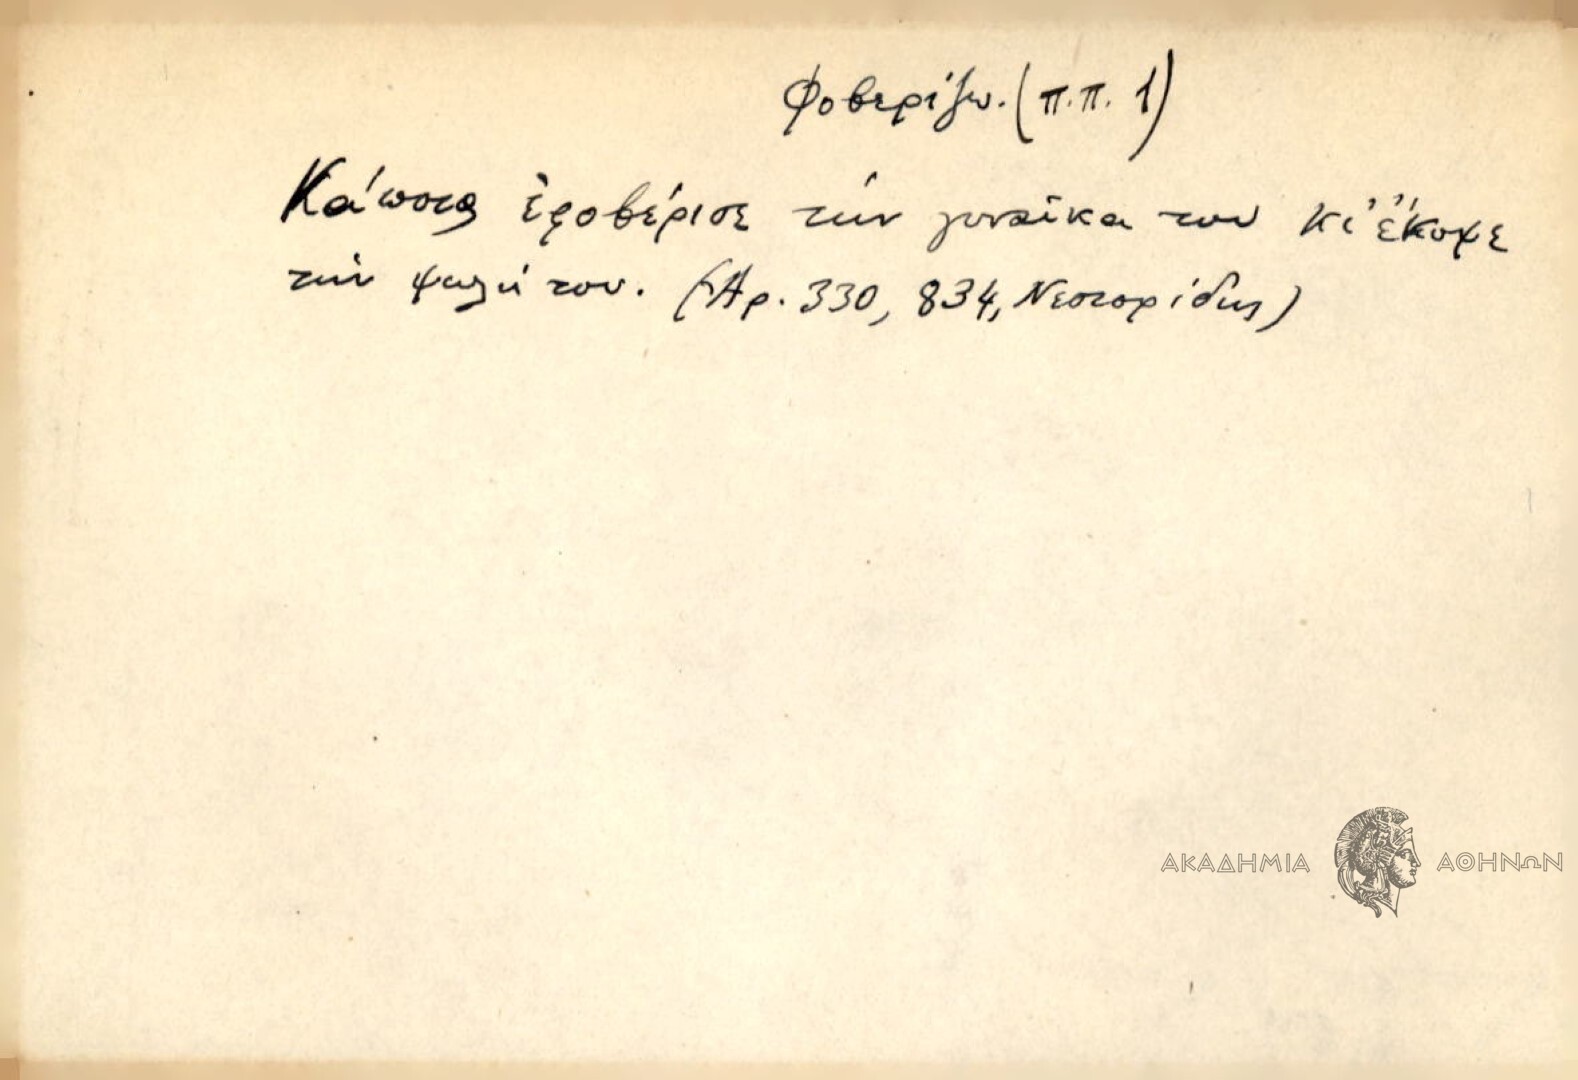 Φοβερίζω. (π.π. 1)
Κάποιος ἐφοβέρισε τὴν γυναῖκα του κι' ἔκοψε
τὴν ψωλή του. (Ἀρ. 330, 834, Νεστορίδης)
ΑΚΑΔΗΜΙΑ ΑΘΗΝΩΝ